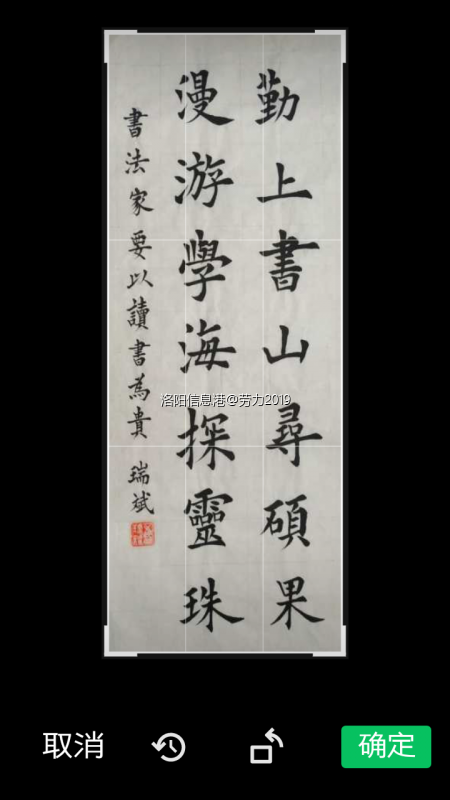 勤上書山尋碩果
漫游學海探靈珠
書法家要以讀書為貴 瑞斌
洛阳信息港@劳力2019
取消
确定